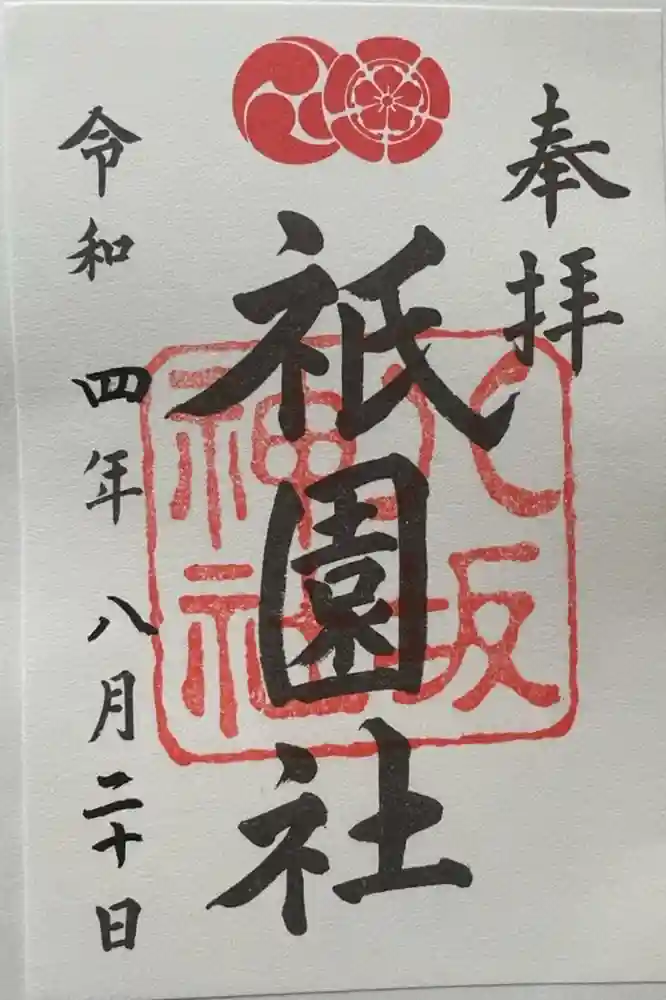 奉拝
祇園社
八坂神社
令和四年八月二十日